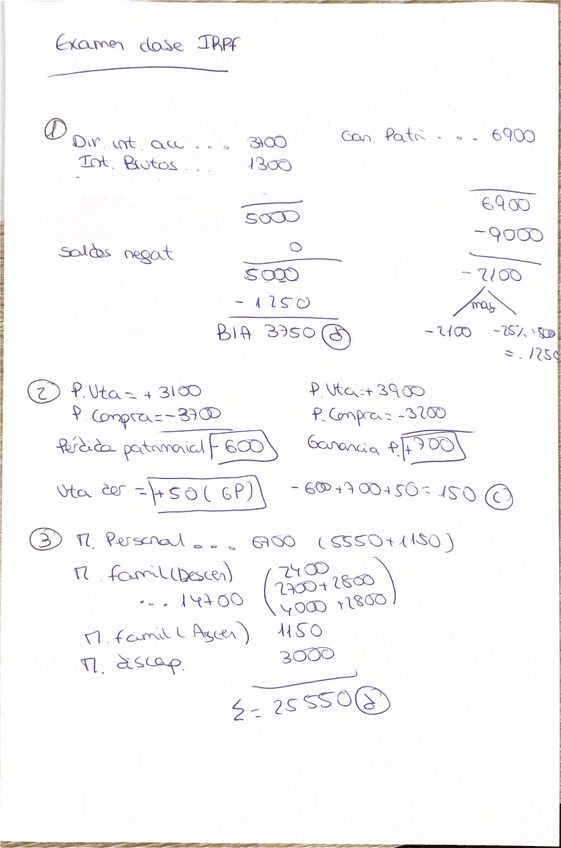 Examen clase IRPF
① Div. int. acc ... 3700 Gan. Patri ... 6900
Int. Brutos ... 1300
5000 6900
-9000
saldos negat 0
5000 -2100
-1250 max
BIA 3750 ⓓ -2100 -25% · 5000
= -1250
② P. Vta = +3100 P. Vta = +3900
P. Compra = -3700 P. Compra = -3200
Pérdida patrimonial -600 Ganancia P. +700
Vta der = +50 (GP) -600+700+50 = 150 ⓒ
③ M. Personal ... 6700 (5550+1150)
M. famil (Descen) 2400
2700+2800
... 14700 4000+2800
M. famil (Ascen) 1150
M. discap. 3000
Σ = 25550 ⓓ